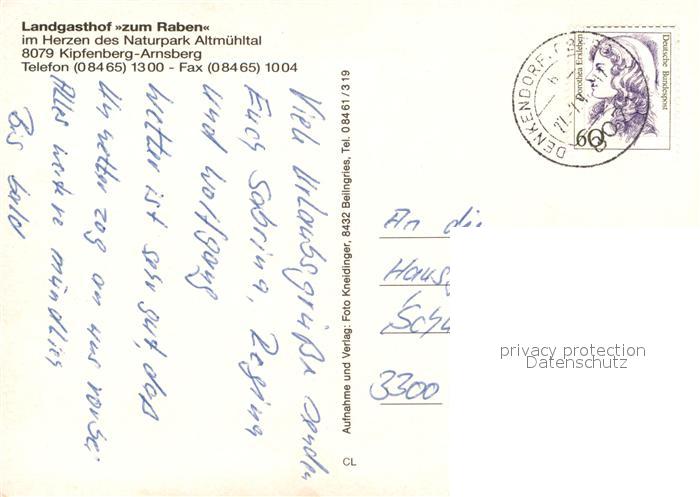 Landgasthof »zum Raben«
im Herzen des Naturpark Altmühltal
8079 Kipfenberg-Arnsberg
Telefon (08465) 1300 - Fax (08465) 1004
Viele Urlaubsgrüße senden
Euch Sabrina, Regina
und Wolfgang
Wetter ist sehr gut, das
Unwetter zog an uns vorbei
Alles weitere mündlich
Bis bald
Aufnahme und Verlag: Foto Kneidinger, 8432 Beilngries, Tel. 08461/319
CL
DENKENDORF
Deutsche Bundespost
Dorothea Erxleben
60
An die
3300
privacy protection
Datenschutz